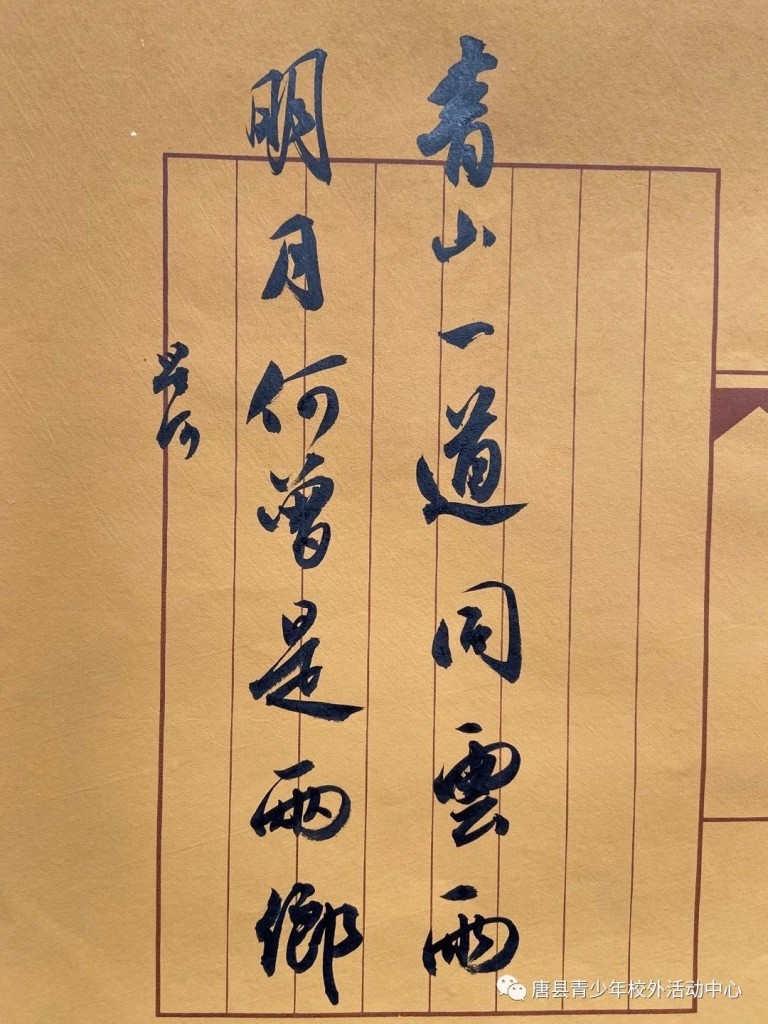 青山一道同雲雨
明月何曾是兩鄉
唐县青少年校外活动中心